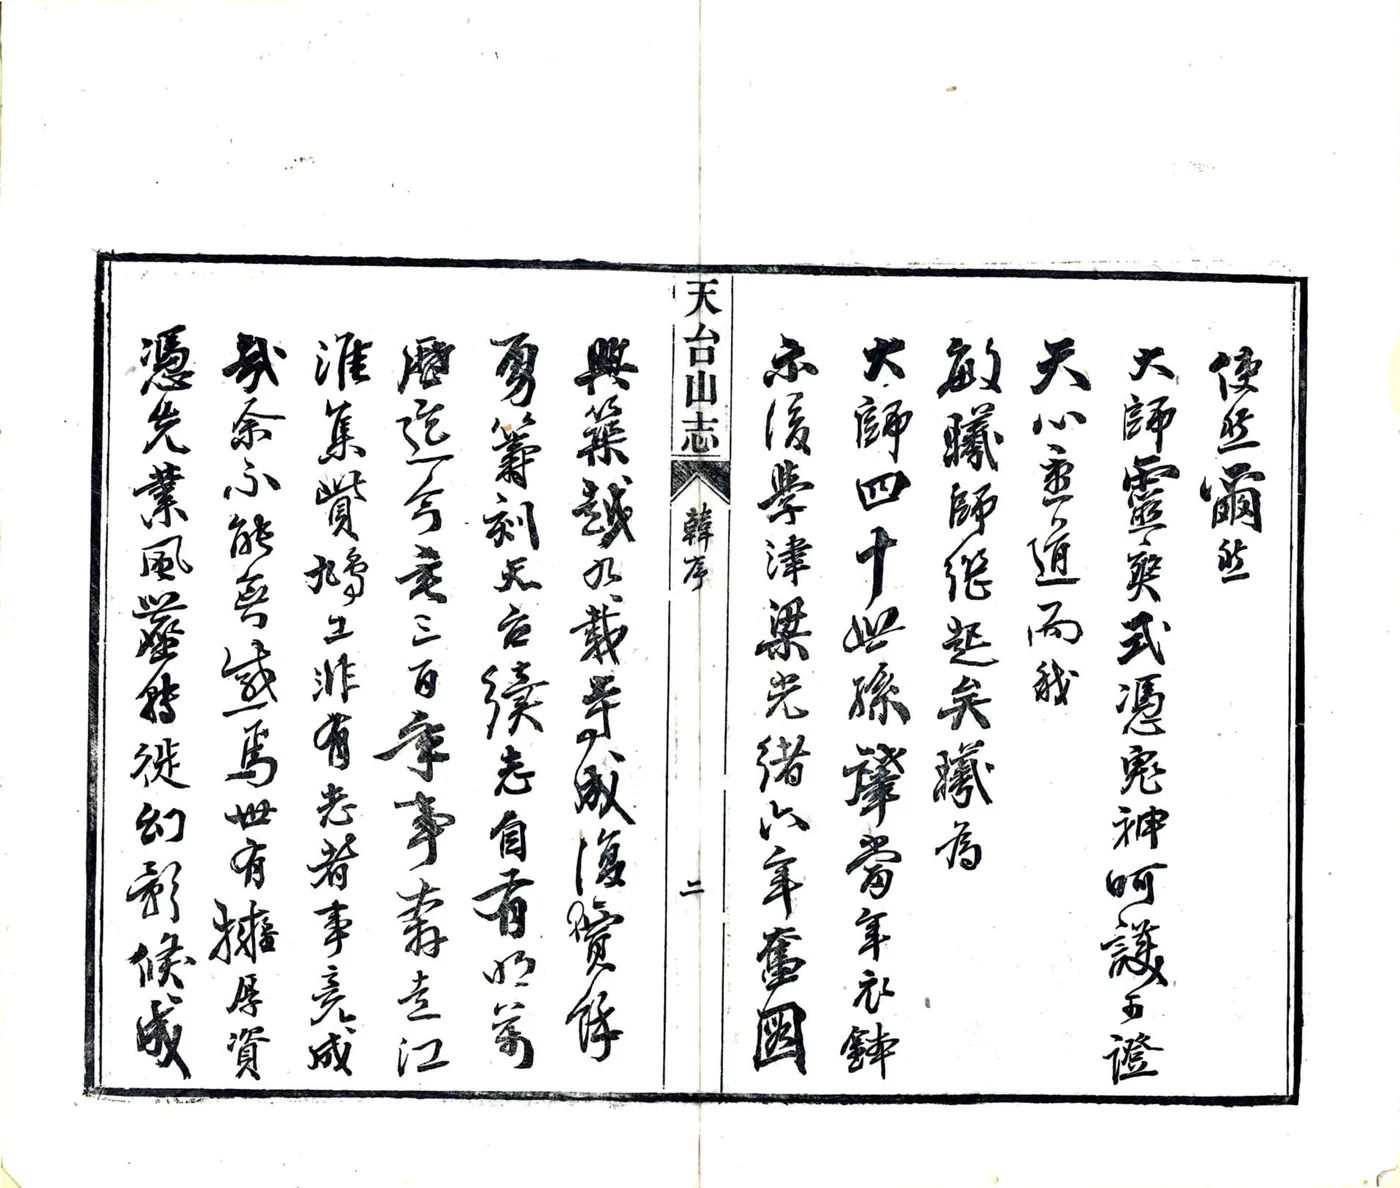 使然爾然
大師靈爽式憑鬼神呵護可證
天心垂邇而我
敏曦師繼起矣曦為
大師四十世孫肇當年衣鉢
示後學津梁光緒六年奮圖
天台山志 韓序 二
興築越九載半成復賈餘
勇纂刻天台續志自有明萬
歷迄今亥三百年事奔走江
淮集貲鳩工非有志者事竟成
哉余不能無感焉世有擁厚資
憑先業風塵轉徙幻影倏成